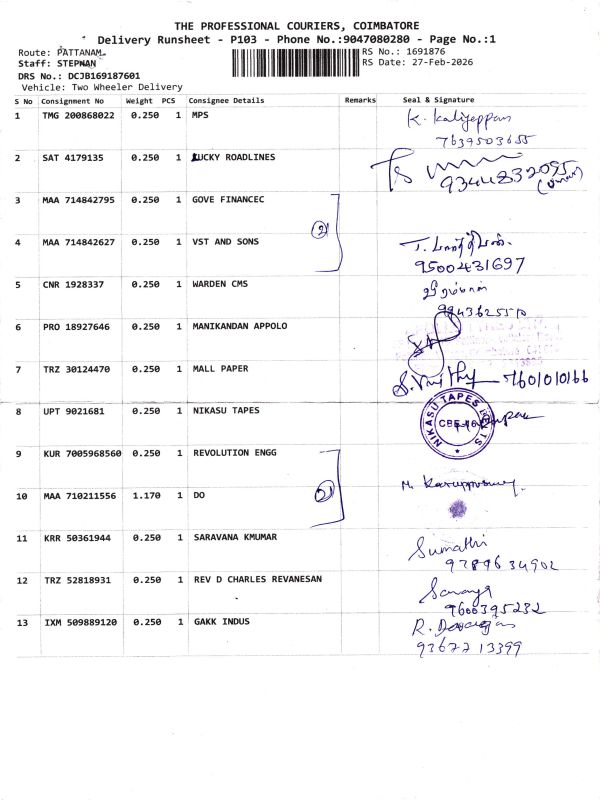 THE PROFESSIONAL COURIERS, COIMBATORE
Delivery Runsheet - P103 - Phone No.:9047080280 - Page No.:1
Route: PATTANAM
RS No.: 1691876
Staff: STEPHAN
RS Date: 27-Feb-2026
DRS No.: DCJB169187601
Vehicle: Two Wheeler Delivery
S No Consignment No Weight PCS Consignee Details Remarks Seal & Signature
1 TMG 200868022 0.250 1 MPS K. Kaliyappan
7639503655
2 SAT 4179135 0.250 1 LUCKY ROADLINES
9344832095
3 MAA 714842795 0.250 1 GOVE FINANCEC
2
4 MAA 714842627 0.250 1 VST AND SONS
9500431697
5 CNR 1928337 0.250 1 WARDEN CMS
9943625510
6 PRO 18927646 0.250 1 MANIKANDAN APPOLO
7 TRZ 30124470 0.250 1 MALL PAPER
7601010166
8 UPT 9021681 0.250 1 NIKASU TAPES
NIKASU TAPES
9 KUR 7005968560 0.250 1 REVOLUTION ENGG
2
10 MAA 710211556 1.170 1 DO
11 KRR 50361944 0.250 1 SARAVANA KMUMAR Sumathi
9789634902
12 TRZ 52818931 0.250 1 REV D CHARLES REVANESAN Saranya
9600395232
13 IXM 509889120 0.250 1 GAKK INDUS
9367713399